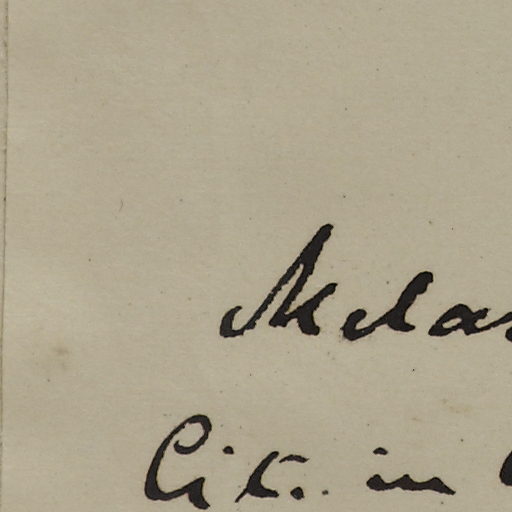 Melas
Cit. in